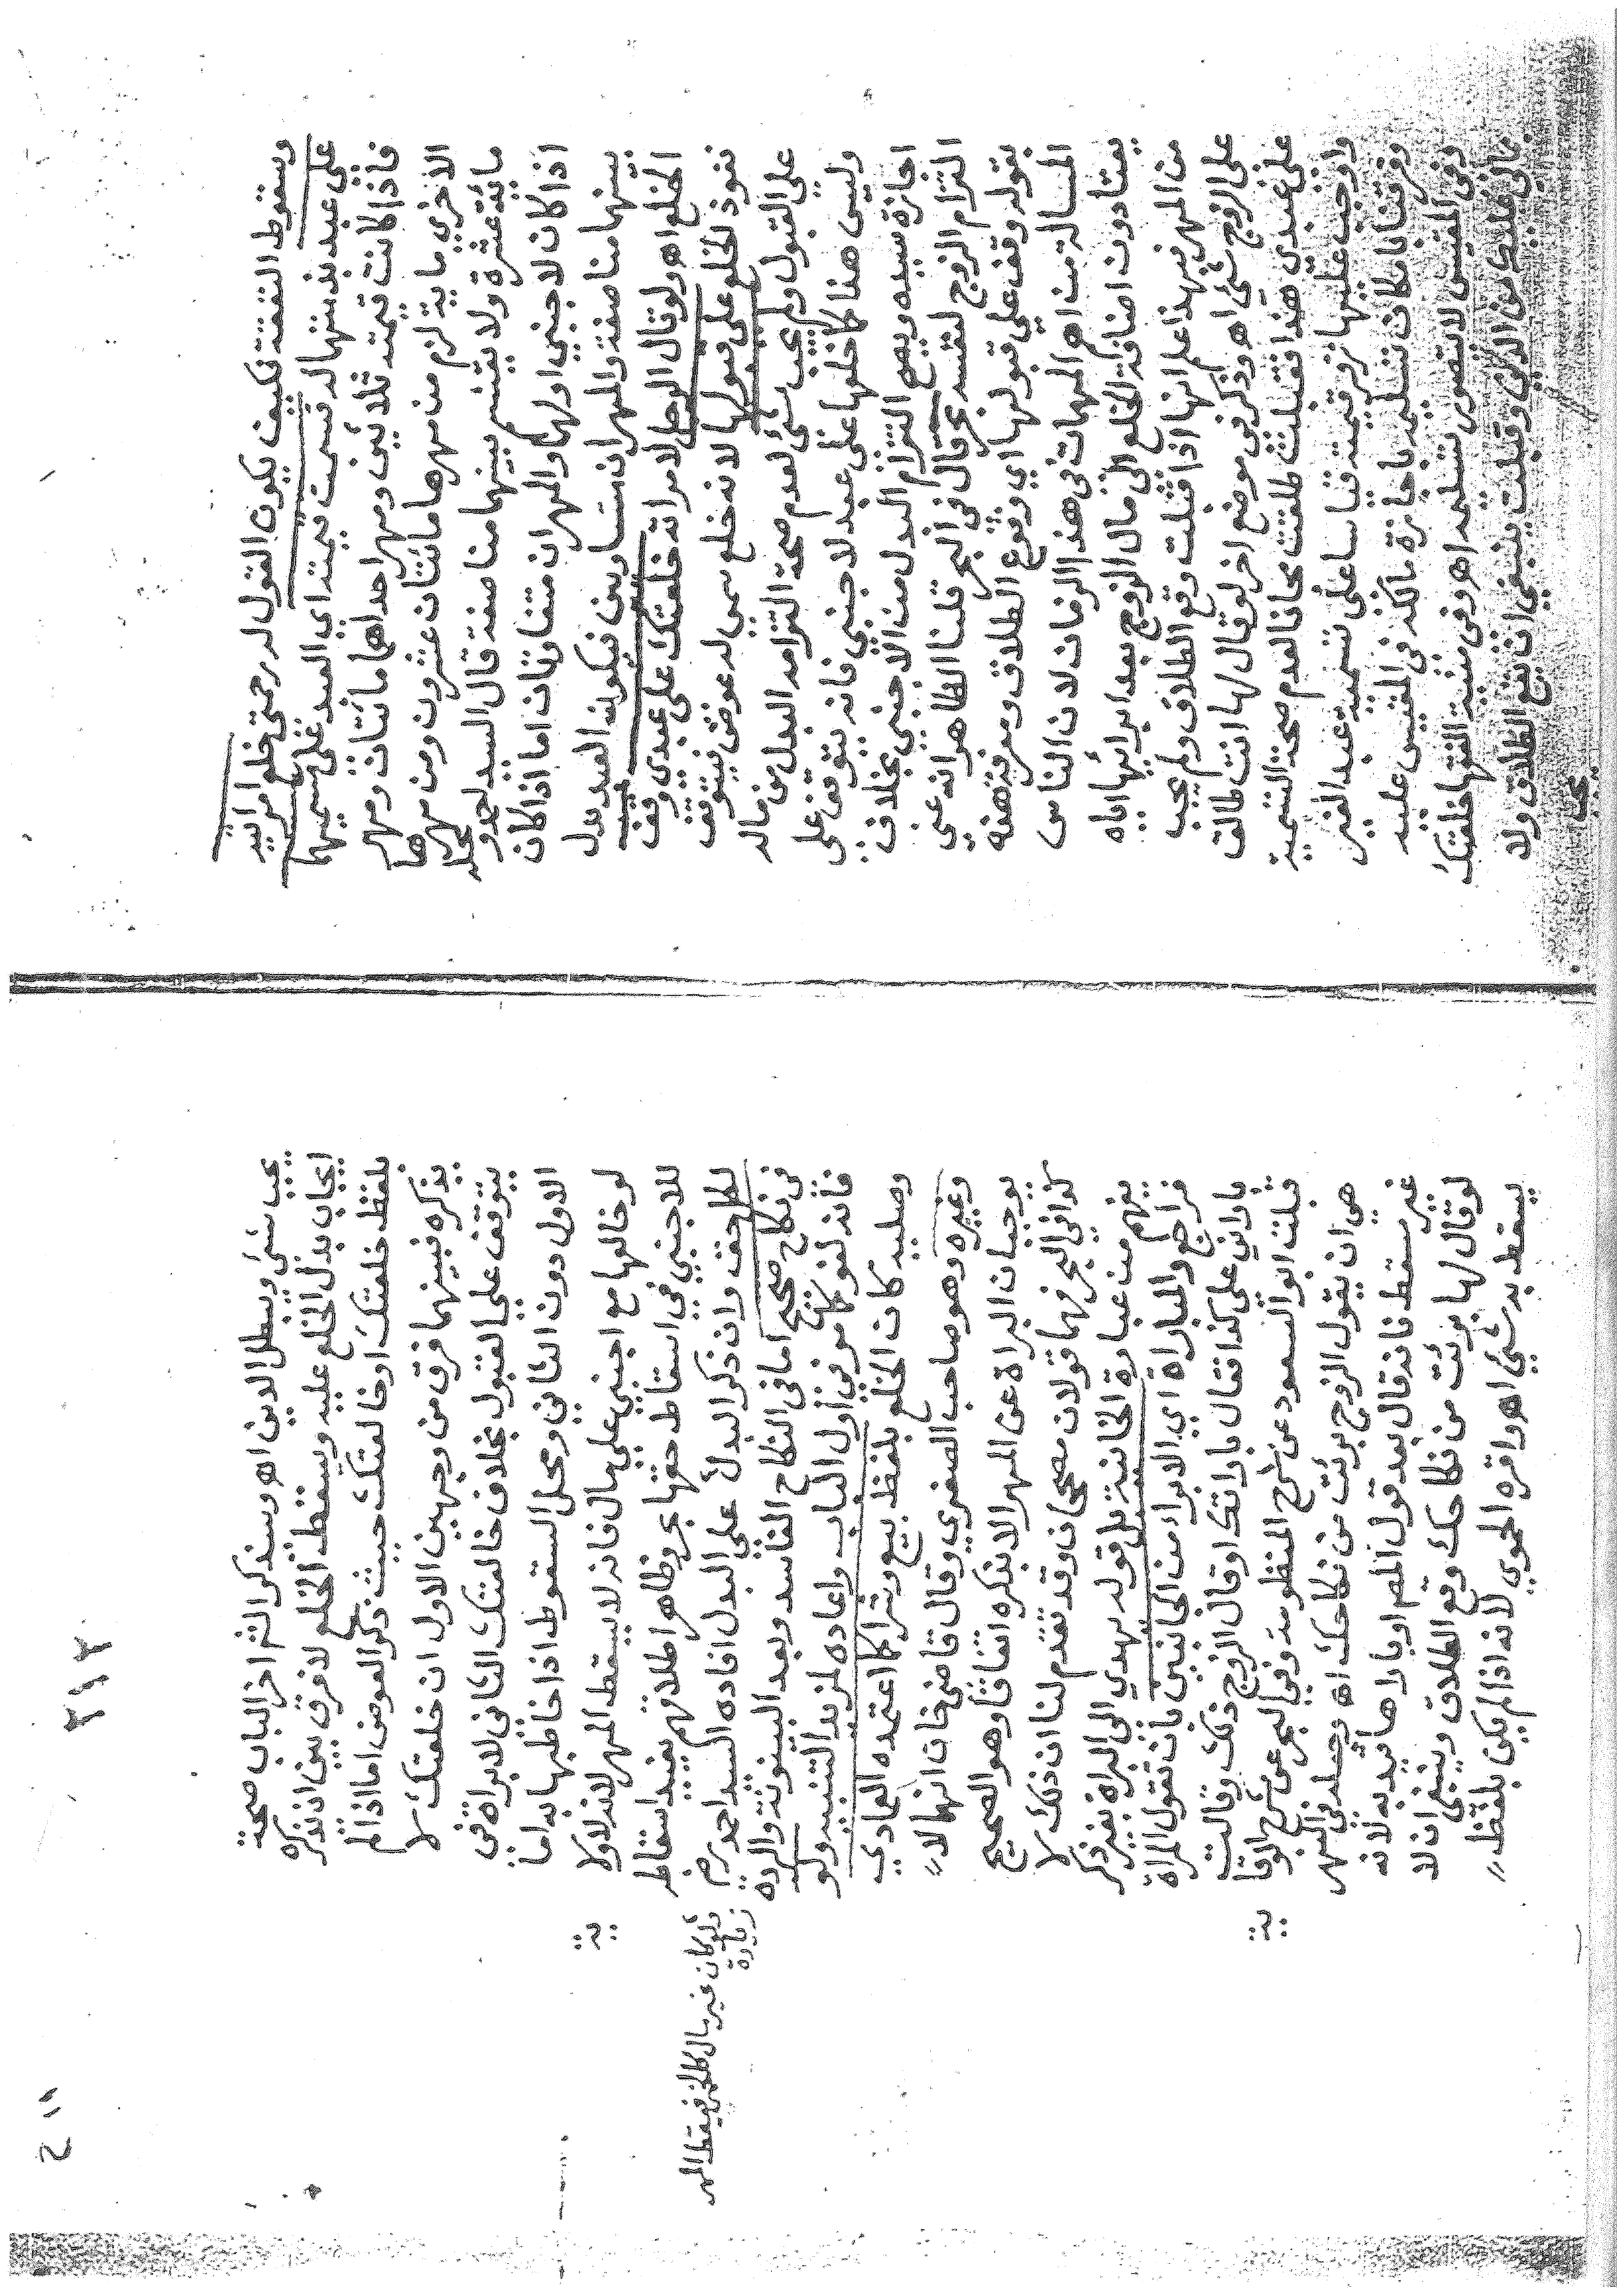 وسقوط النفقة فكيف يكون القول له رحمتي خلع امراتيه
على عبد بذمتهما له قسمت قيمته اي العبد على مسميهما
فاذا كانت قيمته ثلاثين ومهر احداهما مائتان ومهر
الاخري ماية لزم من مهرها مائتان عشرون ومن مهرها
ماية عشرة ولا يقسم بينهما مناصفة قال السيد احمد ومحله
اذا كان لاجنبي او لهما والمهران متفاوتان اما اذا كان
بينهما مناصفة والمهران متساويين فيكون العبد بدل
الخلع اه ولو قال الرجل لامراته خلعتك على عبدي وقف
نفوذ الخلع على قبولها لانه خلع سمي له عوض فيتوقف
على القبول ولم يجب شئ لعدم صحة التزامه البدل من ماله
وليس هذا كما خلعها على عبد لاجنبي فانه يتوقف على
اجازة سيده ويصح التزام البدل من الاجنبي بخلاف
التزام الزوج لنفسه بحر قال في البحر قلنا الظاهر انه عني
بقوله وقف على قبولها اي وقوع الطلاق ومعرفة هذه
المسالة من اهم المهمات في هذا الزمان لان الناس
يعتادون اضافة الخلع الى مال الزوج بعد ابرائها اياه
من المهر فبهذا علم انها اذا قبلت وقع الطلاق ولم يجب
على الزوج شئ اهـ وذكر في موضع اخر لو قال لها انت طالق
على عبدي هذا فقبلت طلقت مجانا لعدم صحة التسمية
واوجب عليها زفر قيمته قياسا على تسمية عبد الغير
وفرقنا بامكان تسليمه باجازة مالكه في المقيس عليه
وفي المقيس لا يتصور تسلمه اهـ وفي منية الفقها خلعتك
بمالي عليك من الدين وقبلت ينبغي ان يقع الطلاق ولا
يجب
٢١٢
يجب شئ ويبطل الدين اهـ وسنذكر الشم اخر الباب صحة
ايجاب بدل الخلع عليه ويسقط الخلع لا فرق بين ان يذكره
بلفظ خلعتك او خالعتك حيث ذكر العوض اما اذا لم
يذكره فبينهما فرق من وجهين الاول ان خلعتك لا
يتوقف على القبول بخلاف خالعتك الثاني لا براة في
الاول دون الثاني ومحل السقوط اذا خاطبها به اما
لو خالعها مع اجنبي على مال فانه لا يسقط المهر لانه لا ولاية
للاجنبي في اسقاط حقها بحر وظاهر اطلاقهم يفيد اسقاط
لكل حق وان ذكر البدل على البدل افاده السيد احمد
في نكاح صحيح اما في النكاح الفاسد وبعد البينونة والردة
فانه لغو كما مر في اول الباب واعاده لمزيد التنبيه ولو
وصليه كان الخلع بلفظ بيع وشرا كما اعتمده العمادي
وغيره وهو صاحب الصغري وقال قاضي خان انهما لا
يوجبان البراة عن المهر الا بذكره اتفاقا وهو الصحيح
كذا في البحر فهما قولان مصححان وقد تقدم لنا ان ذلك لا
يفهم من عبارة الخانية بل قوله يهدي الى البراة بغير ذكر
فراجع والمباراة اي الابراء من الجانبين بان تقول المراة
باراني على كذا فقال باراتك او قال الزوج ذلك وقالت
قبلت ابو السعود عن شرح المنظومة وفي البحر عن شرح الوقاية
هي ان يقول الزوج برئت من نكاحك اهـ وجعله في النهر
غير مسقط فانه قال بعد قول المص او باراها قيد به لانه
لو قال لها برئت من نكاحك وقع الطلاق وينبغي ان لا
يسقط به شئ اهـ واقره الحموي لانه اذا لم يكن بلفظ
فلو كان غير مال كالخمر فيسقط المهر
زيادة